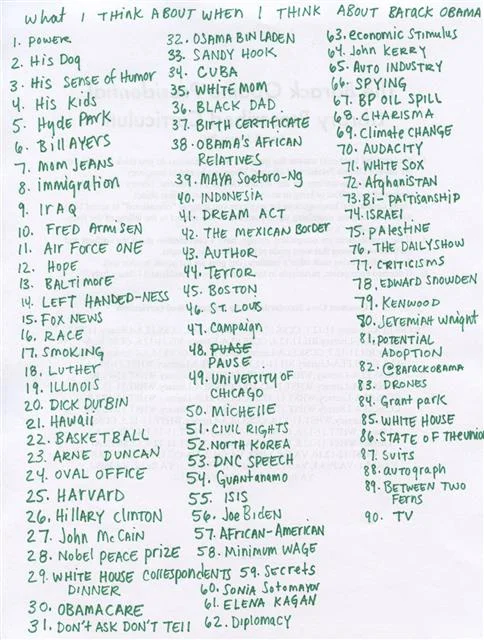 What I THINK ABOUT WHEN I THINK ABOUT BARACK OBAMA
1. POWER
2. His Dog
3. His SENSE OF HUMOR
4. His KIDS
5. Hyde Park
6. Bill AYERS
7. MOM JEANS
8. immigration
9. IRAQ
10. FRED ARMISEN
11. AIR FORCE ONE
12. HOPE
13. BALTIMORE
14. LEFT HANDED-NESS
15. FOX NEWS
16. RACE
17. SMOKING
18. LUTHER
19. ILLINOIS
20. DICK DURBIN
21. HAWAII
22. BASKETBALL
23. ARNE DUNCAN
24. OVAL OFFICE
25. HARVARD
26. HILLARY CLINTON
27. John McCain
28. Nobel PEACE prize
29. WHITE HOUSE CORRESPONDENTS
DINNER
30. OBAMACARE
31. DON'T ASK DON'T TELL
32. OSAMA BIN LADEN
33. SANDY HOOK
34. CUBA
35. WHITE MOM
36. BLACK DAD
37. BIRTH CERTIFICATE
38. OBAMA'S AFRICAN
RELATIVES
39. MAYA Soetoro-Ng
40. INDONESIA
41. DREAM ACT
42. THE MEXICAN BORDER
43. AUTHOR
44. TERROR
45. BOSTON
46. ST. LOUIS
47. Campaign
48. PUASE
PAUSE
49. UNIVERSITY OF
CHICAGO
50. MICHELLE
51. CIVIL RIGHTS
52. NORTH KOREA
53. DNC SPEECH
54. Guantanamo
55. ISIS
56. Joe BIDEN
57. AFRICAN-AMERICAN
58. Minimum WAGE
59. Secrets
60. SONIA Sotomayor
61. ELENA KAGAN
62. Diplomacy
63. economic Stimulus
64. John KERRY
65. AUTO INDUSTRY
66. SPYING
67. BP OIL SPILL
68. CHARISMA
69. Climate CHANGE
70. AUDACITY
71. WHITE SOX
72. AfghaniSTAN
73. Bi-partisanship
74. ISRAEL
75. PAlestine
76. THE DAILY SHOW
77. CRITICISMS
78. EDWARD SNOWDEN
79. KENWOOD
80. JEREMIAH Wright
81. POTENTIAL
ADOPTION
82. @BARACKOBAMA
83. DRONES
84. Grant park
85. WHITE HOUSE
86. STATE OF THE UNION
87. Suits
88. autograph
89. BETWEEN TWO
Ferns
90. TV